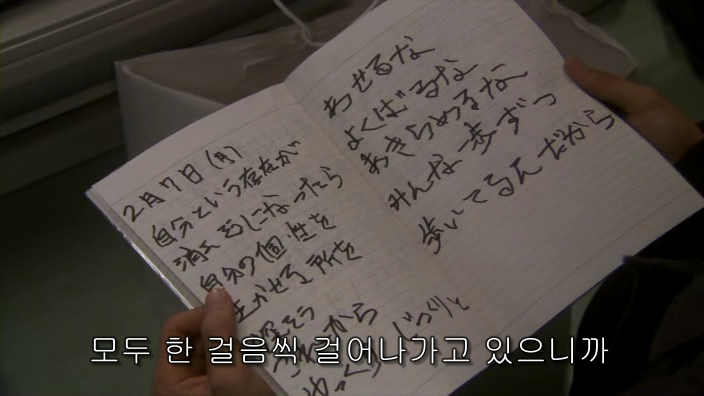 2月7日(月)
自分という存在が
消えそうになったら
自分の個性を
生かせる所を
探そう
それから
ゆっくり じっくりと
あせるな
よくばるな
あきらめるな
みんな一歩ずつ
歩いてるんだから
모두 한 걸음씩 걸어나가고 있으니까